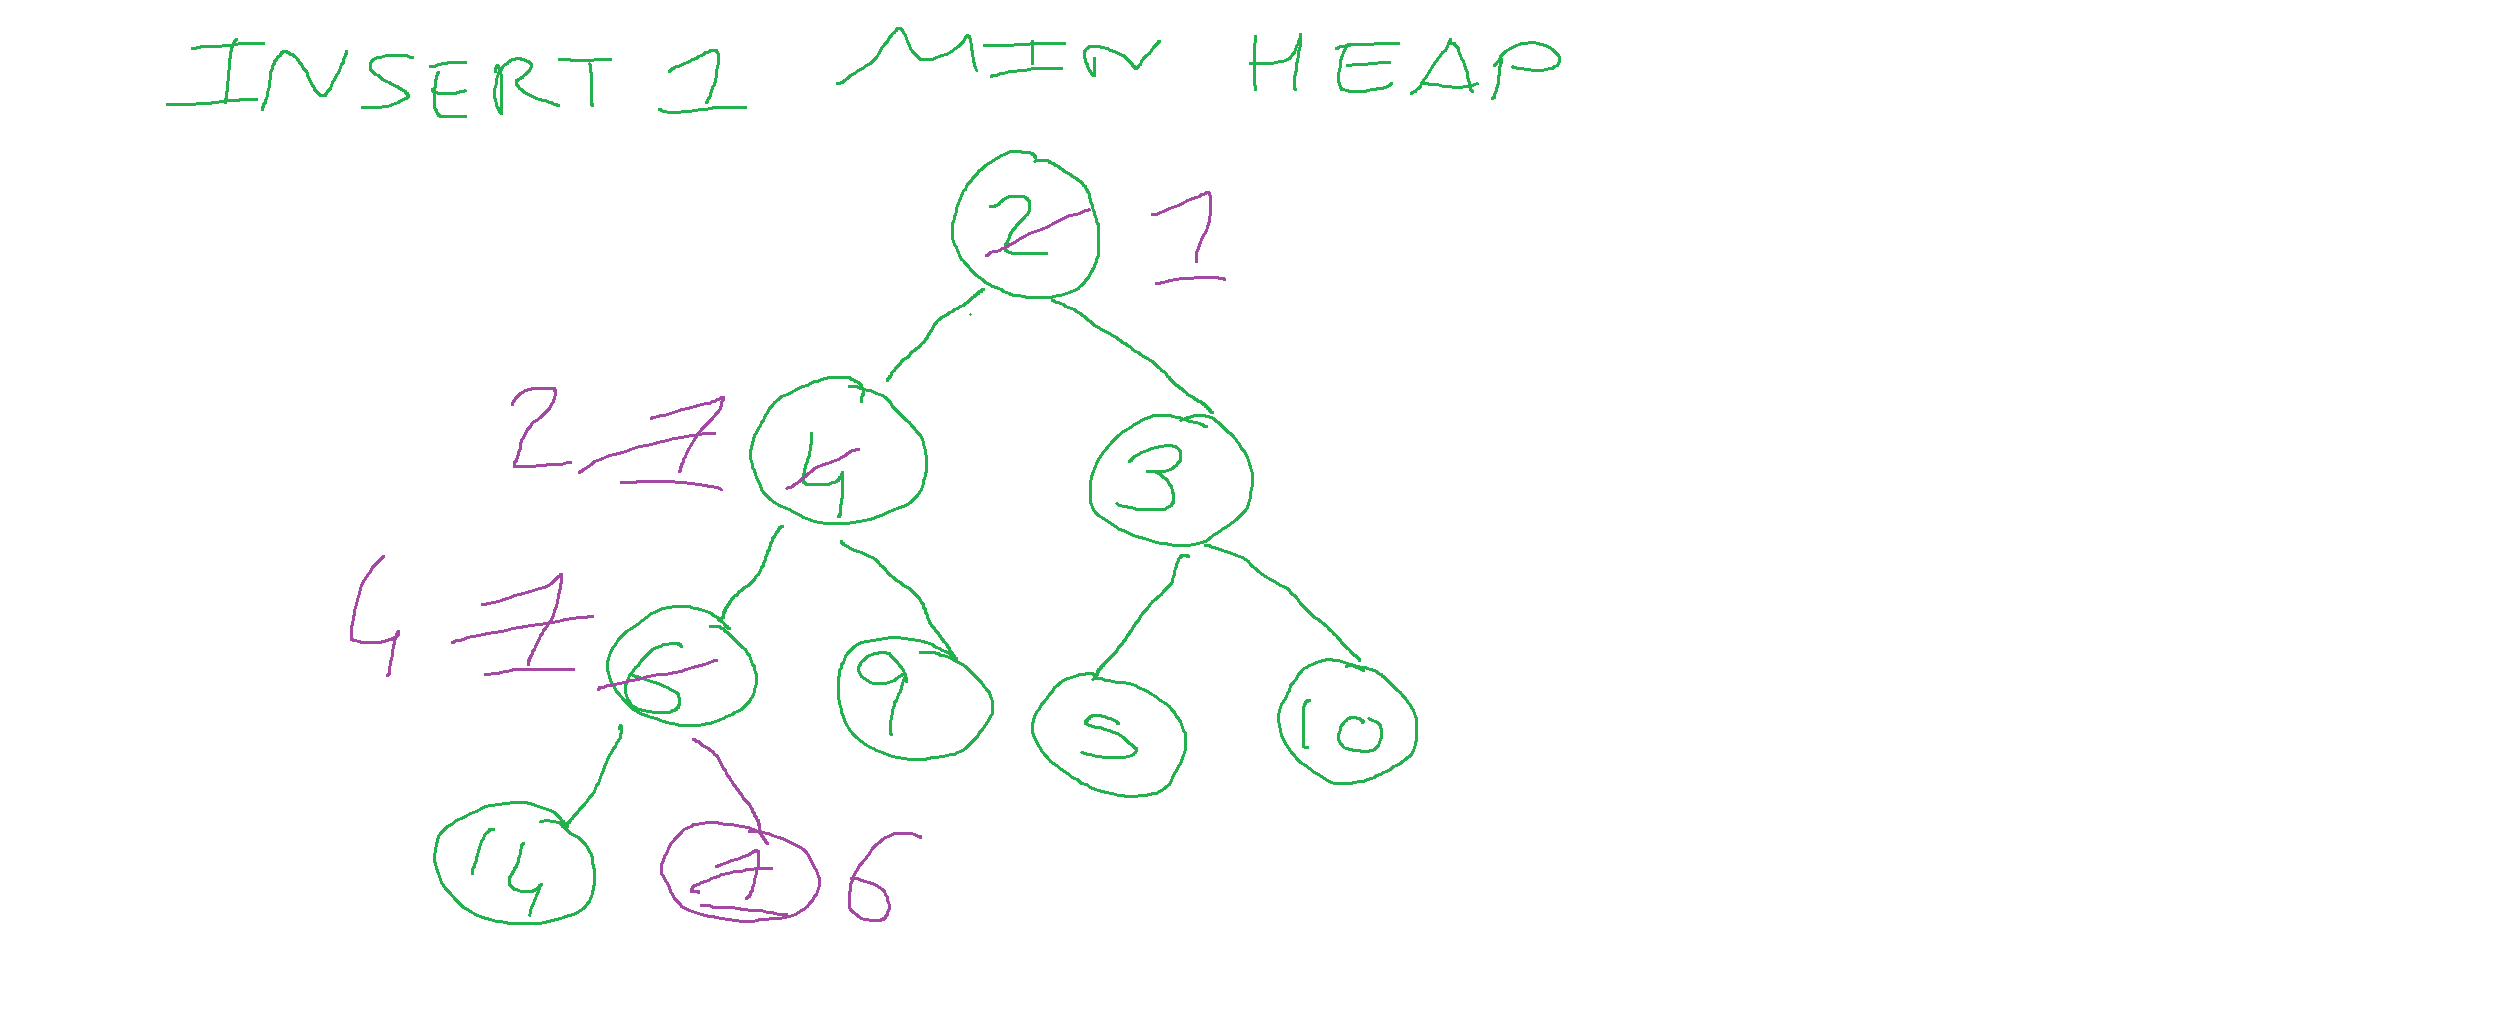 INSERT 1 MIN HEAP
2 1
2 1 4 3
4 1 6 9 5 10
14 1 6